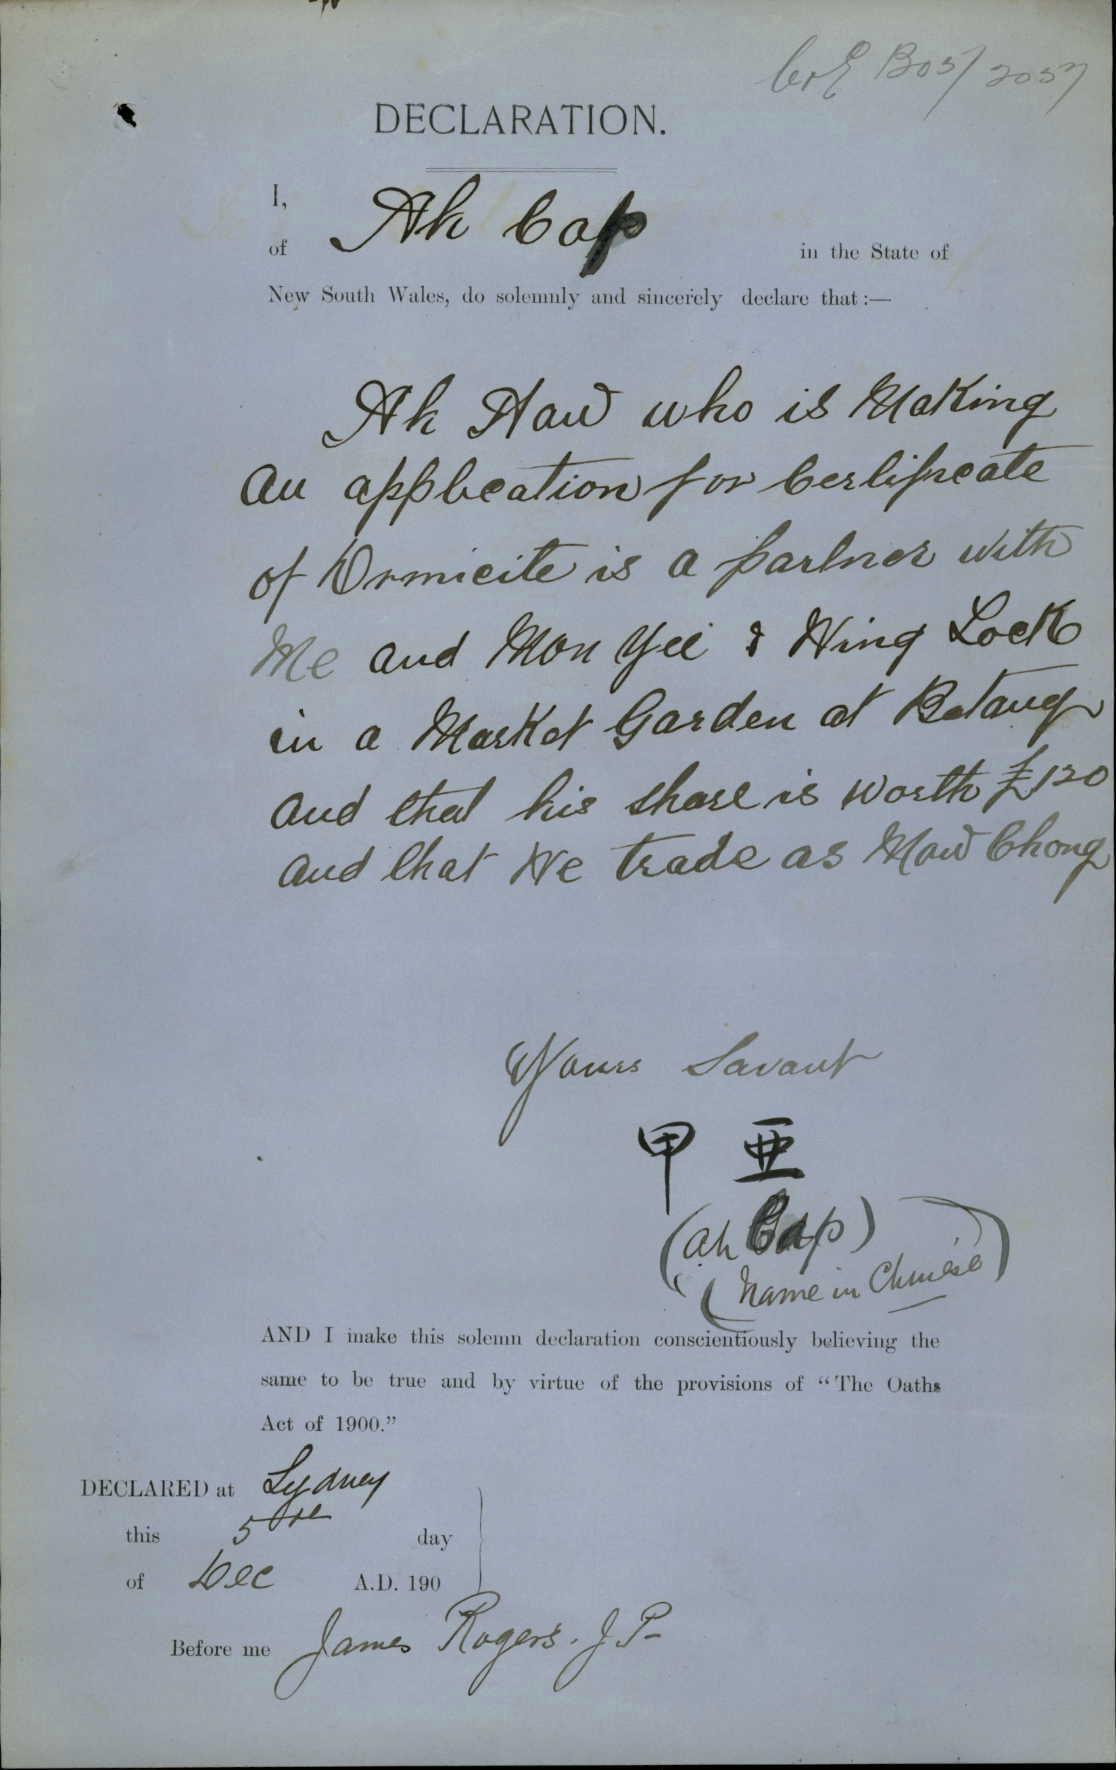 C of E B05/2057
DECLARATION.
I,
of Ah Cap in the State of
New South Wales, do solemnly and sincerely declare that :—
Ah Haw who is Making
an application for Certificate
of Domicite is a partner with
Me and Mon Yee & Hing Lock
in a Market Garden at Botany
and that his share is worth £120
and that We trade as Maw Chong
Yours Savant
甲 亜
(Ah Cap)
(Name in Chinese)
AND I make this solemn declaration conscientiously believing the
same to be true and by virtue of the provisions of “The Oaths
Act of 1900.”
DECLARED at Sydney
this 5th day
of Dec A.D. 190
Before me James Rogers. J.P.